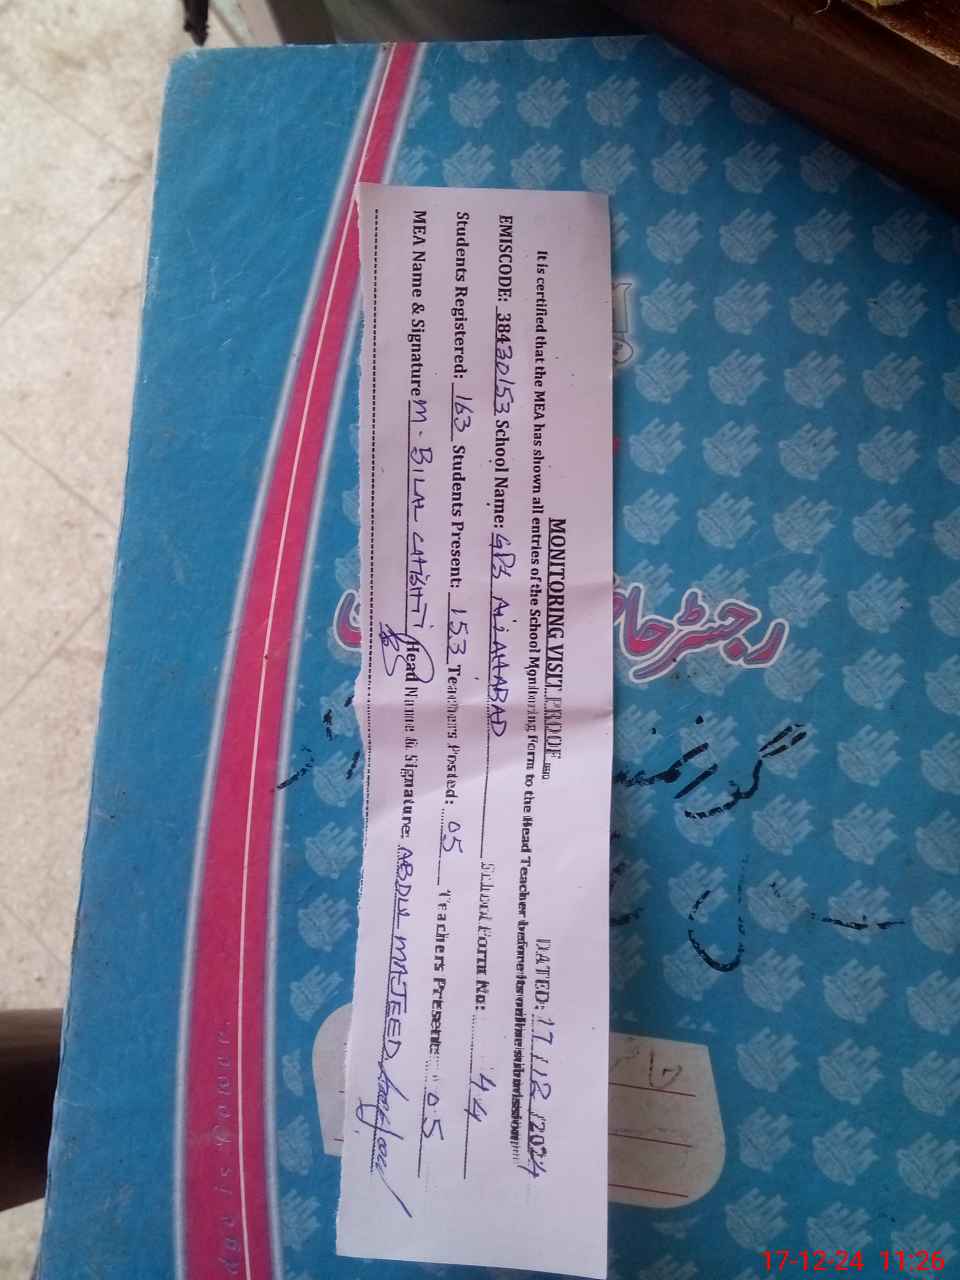 MONITORING VISIT PROOF
DATED: 17/12/2024
It is certified that the MEA has shown all entries of the School Monitoring Form to the Head Teacher before its online submission
EMISCODE: 38430153 School Name: GPS ALLAHABAD School Form No: 44
Students Registered: 163 Students Present: 153 Teachers Posted: 05 Teachers Present: 05
MEA Name & Signature M. BILAL Head Name & Signature: ABDUL MAJEED
رجسٹر
17-12-24 11:26